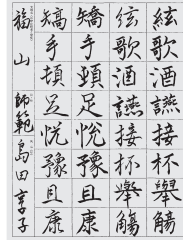 絃歌酒讌接杯舉觴
絃歌酒讌接杯舉觴
矯手頓足悅豫且康
矯手頓足悅豫且康
福山 師範 島田